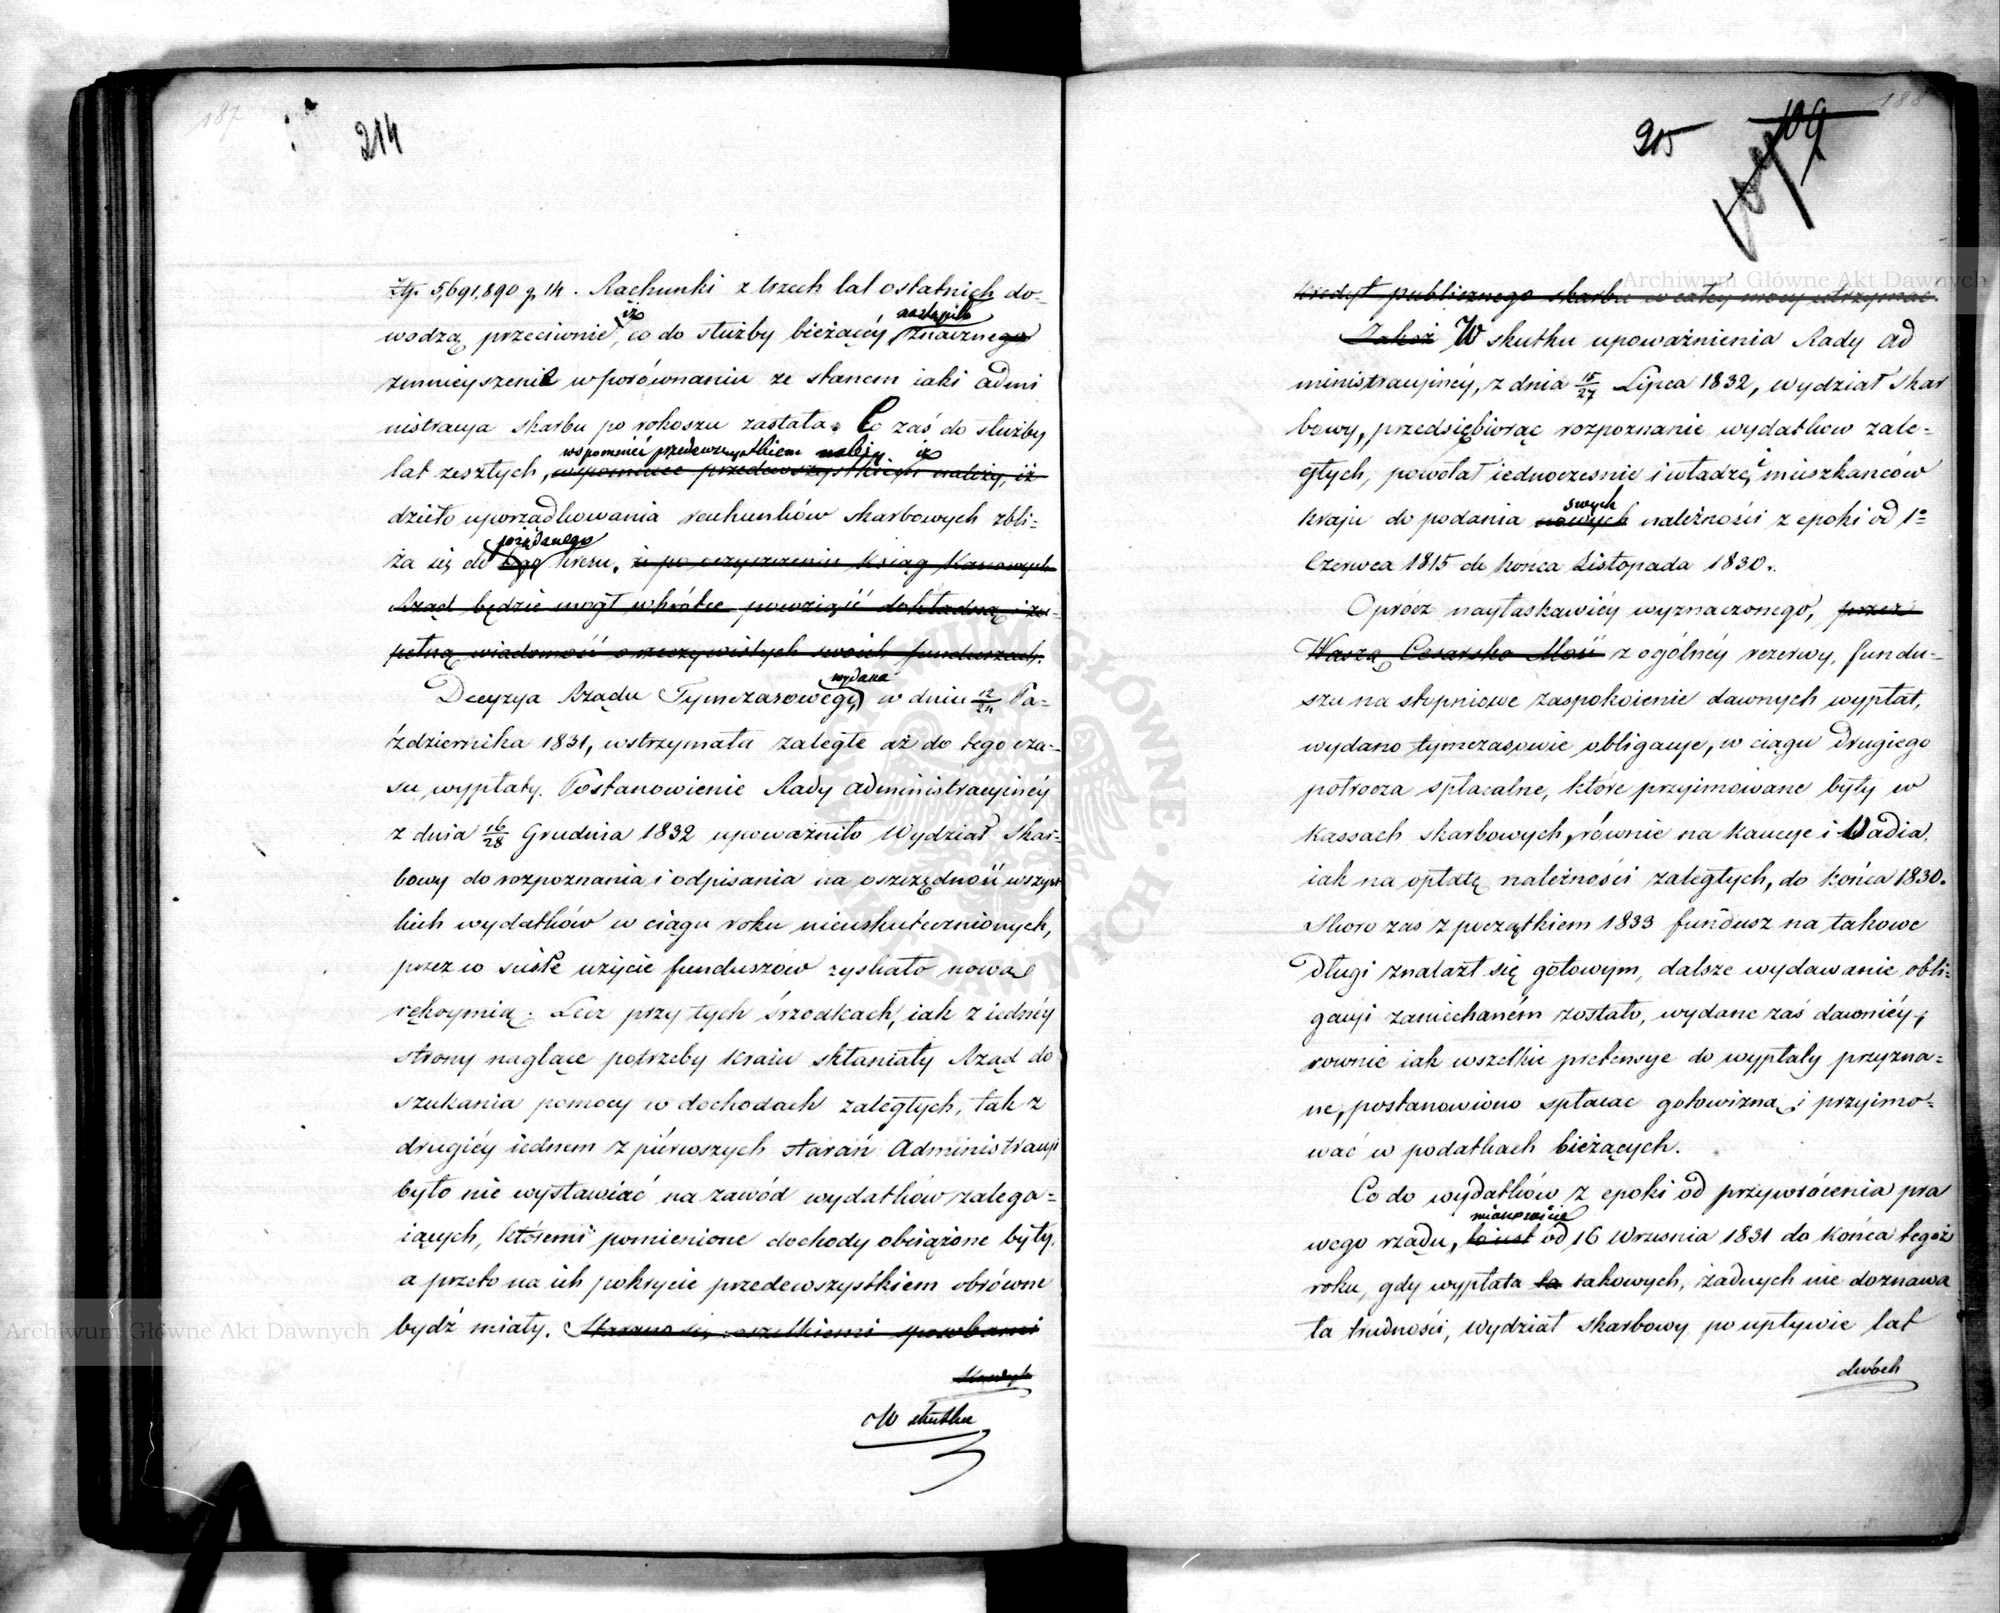 187
214
złp. 5,691,890 g. 14. Rachunki z trzech lat ostatnich do-
iż nastąpiło
wodzą przeciwnie, co do służby bieżącéy znacznego
zmnieyszenie w porównaniu ze stanem iaki admi
nistracya skarbu po rokoszu zastała. Co zaś do służby
wspomnieć przedewszystkiem należy, iż
lat zeszłych, wspomniec przedewszystkiem należy, iż
dzieło uporządkowania rachunków skarbowych zbli-
pożądanego
ża się do kresu, iż po oczyszczeniu Ksiąg Kassowych
Rząd będzie mógł wkrótce powziąść dokładną i zu-
pełną wiadomość o rzeczywistych swoich funduszach.
wydana
Decyzya Rządu Tymczasowego, w dniu 12/24 Pa-
ździernika 1831, wstrzymała zaległe aż do tego cza-
su wypłaty. Postanowienie Rady administracyinéy
z dnia 16/28 Grudnia 1832 upoważniło Wydział Skar-
bowy do rozpoznania i odpisania na oszczędność wszyst
kich wydatków w ciągu roku nieuskutecznionych,
przez co ścisłe użycie funduszów zyskało nową
rękoymią. Lecz przy tych śrzodkach, iak z iednéy
strony naglące potrzeby kraiu skłaniały Rząd do
szukania pomocy w dochodach zaległych, tak z
drugiéy iednem z piérwszych starań Administracyi
było nie wystawiać na zawód wydatków zalega-
iących, któremi pomienione dochody obciążone były,
a przeto na ich pokrycie przedewszystkiem obrócone
bydź miały. Starano się wszelkiemi sposobami
Kredyt
W skutku
188
215
109
kredyt publicznego skarbu w całey mocy utrzymać.
Jakoż W skutku upoważnienia Rady ad
ministracyinéy, z dnia 15/27 Lipca 1832, wydział skar
bowy, przedsiębiorąc rozpoznanie wydatkow zale-
głych, powołał iednocześnie i władze, i mieszkanców
swych
kraju do podania nowych należności z epoki od 1o
Czerwca 1815 do końca Listopada 1830.
Oprócz nayłaskawiéy wyznaczonego, przez
Waszą Cesarsko Mość z ogólnéy rezerwy, fundu-
szu na stopniowe zaspokoienie dawnych wypłat,
wydano tymczasowie obligacye, w ciągu drugiego
półrocza spłacalne, które przyimowane były w
kassach skarbowych, równie na kaucye i Vadia,
iak na opłatę należności zaległych, do końca 1830.
Skoro zas z początkiem 1833 fundusz na takowe
długi znalazł się gotowym, dalsze wydawanie obli-
gacyi zaniechaném zostało, wydane zaś dawniéy,
rownie iak wszelkie pretensye do wypłaty przyzna-
ne, postanowiono spłacac gotowizną i przyimo-
wać w podatkach bieżących.
Co do wydatków z epoki od przywrócenia pra
mianowicie
wego rządu, to iest od 16 Wrzesnia 1831 do końca tegoż
roku, gdy wypłata ta takowych, żadnych nie doznawa
ła trudności, wydział skarbowy po upływie lat
dwóch
Archiwum Główne Akt Dawnych
Archiwum Główne Akt Dawnych
ARCHIWUM GŁÓWNE AKT DAWNYCH